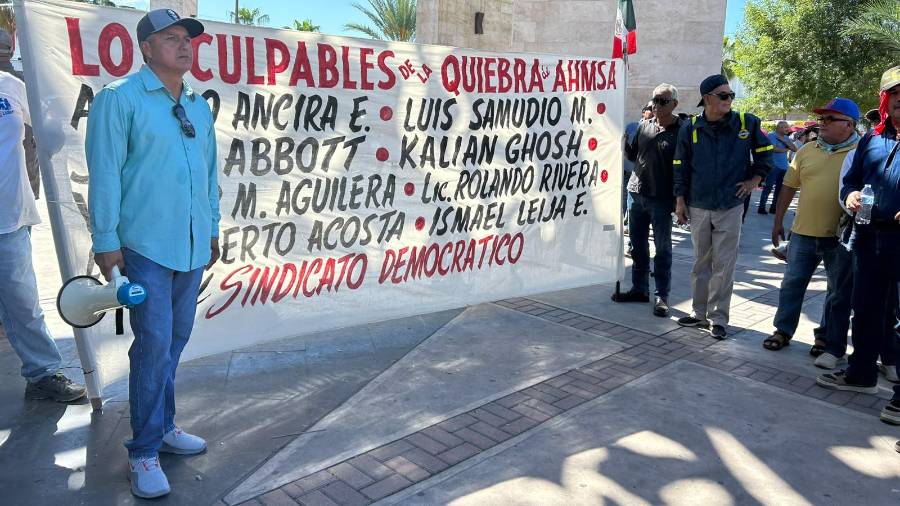 LO CULPABLES DE LA QUIEBRA DE AHMSA
ANCIRA E. LUIS SAMUDIO M.
ABBOTT KALIAN GHOSH
M. AGUILERA LIC. ROLANDO RIVERA
ERTO ACOSTA ISMAEL LEIJA E.
SINDICATO DEMOCRATICO